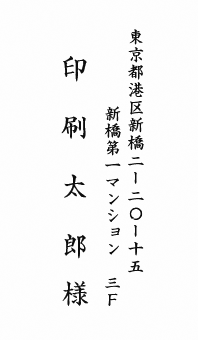 東京都港区新橋二ー二〇ー十五
新橋第一マンション 三F
印刷太郎様